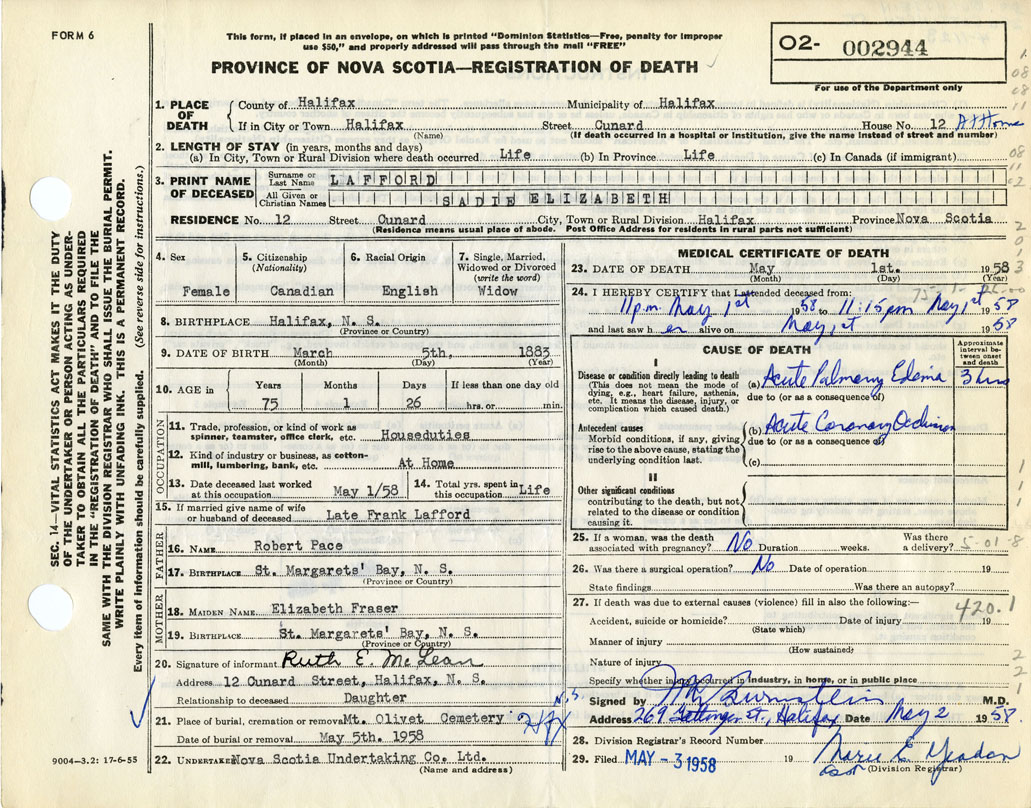 FORM 6
This form, if placed in an envelope, on which is printed "Dominion Statistics—Free, penalty for improper
use $50," and properly addressed will pass through the mail "FREE"
PROVINCE OF NOVA SCOTIA—REGISTRATION OF DEATH
02- 002944
For use of the Department only
SEC. 14—VITAL STATISTICS ACT MAKES IT THE DUTY
OF THE UNDERTAKER OR PERSON ACTING AS UNDER-
TAKER TO OBTAIN ALL THE PARTICULARS REQUIRED
IN THE "REGISTRATION OF DEATH" AND TO FILE THE
SAME WITH THE DIVISION REGISTRAR WHO SHALL ISSUE THE BURIAL PERMIT.
WRITE PLAINLY WITH UNFADING INK. THIS IS A PERMANENT RECORD.
Every item of information should be carefully supplied. (See reverse side for instructions.)
1. PLACE OF DEATH
County of Halifax Municipality of Halifax
If in City or Town Halifax Street Cunard House No. 12 At Home
(Name) (If death occurred in a hospital or institution, give the name instead of street and number)
2. LENGTH OF STAY (in years, months and days)
(a) In City, Town or Rural Division where death occurred Life (b) In Province Life (c) In Canada (if immigrant)
3. PRINT NAME OF DECEASED
Surname or Last Name LAFFORD
All Given or Christian Names SADIE ELIZABETH
RESIDENCE No. 12 Street Cunard City, Town or Rural Division Halifax Province Nova Scotia
(Residence means usual place of abode. Post Office Address for residents in rural parts not sufficient)
4. Sex
Female
5. Citizenship
(Nationality)
Canadian
6. Racial Origin
English
7. Single, Married,
Widowed or Divorced
(write the word)
Widow
8. BIRTHPLACE Halifax, N. S.
(Province or Country)
9. DATE OF BIRTH March 5th, 1883
(Month) (Day) (Year)
10. AGE in Years Months Days If less than one day old
75 1 26 hrs. or min.
OCCUPATION
11. Trade, profession, or kind of work as
spinner, teamster, office clerk, etc. Houseduties
12. Kind of industry or business, as cotton-
mill, lumbering, bank, etc. At Home
13. Date deceased last worked
at this occupation May 1/58
14. Total yrs. spent in
this occupation Life
15. If married give name of wife
or husband of deceased Late Frank Lafford
FATHER
16. NAME Robert Pace
17. BIRTHPLACE St. Margarets' Bay, N. S.
(Province or Country)
MOTHER
18. MAIDEN NAME Elizabeth Fraser
19. BIRTHPLACE St. Margarets' Bay, N. S.
(Province or Country)
20. Signature of informant Ruth E. McLean
Address 12 Cunard Street, Halifax, N. S.
Relationship to deceased Daughter
21. Place of burial, cremation or removal Mt. Olivet Cemetery Hfx N.S.
Date of burial or removal May 5th. 1958
22. UNDERTAKER Nova Scotia Undertaking Co. Ltd.
(Name and address)
9004-3.2: 17-6-55
MEDICAL CERTIFICATE OF DEATH
23. DATE OF DEATH May 1st. 1958
(Month) (Day) (Year)
24. I HEREBY CERTIFY that I attended deceased from:
11 pm May 1st 1958 to 11:15 pm May 1st 1958
and last saw her alive on May 1st 1958
CAUSE OF DEATH
Approximate
interval be-
tween onset
and death
I
Disease or condition directly leading to death
(This does not mean the mode of
dying, e.g., heart failure, asthenia,
etc. It means the disease, injury, or
complication which caused death.)
(a) Acute Pulmonary Edema 3 hrs
due to (or as a consequence of)
Antecedent causes
Morbid conditions, if any, giving
rise to the above cause, stating the
underlying condition last.
(b) Acute Coronary Occlusion
due to (or as a consequence of)
(c)
II
Other significant conditions
contributing to the death, but not
related to the disease or condition
causing it.
25. If a woman, was the death
associated with pregnancy? No Duration weeks. Was there
a delivery? 5-01-8
26. Was there a surgical operation? No Date of operation 19
State findings Was there an autopsy?
27. If death was due to external causes (violence) fill in also the following:—
420.1
Accident, suicide or homicide? Date of injury 19
(State which)
Manner of injury
(How sustained)
Nature of injury
Specify whether injury occurred in industry, in home, or in public place
Signed by M.D.
Address 269 Gottingen St., Halifax Date May 2 1958.
28. Division Registrar's Record Number
29. Filed MAY - 3 1958 19 Marie E. Yeadon
(Division Registrar)